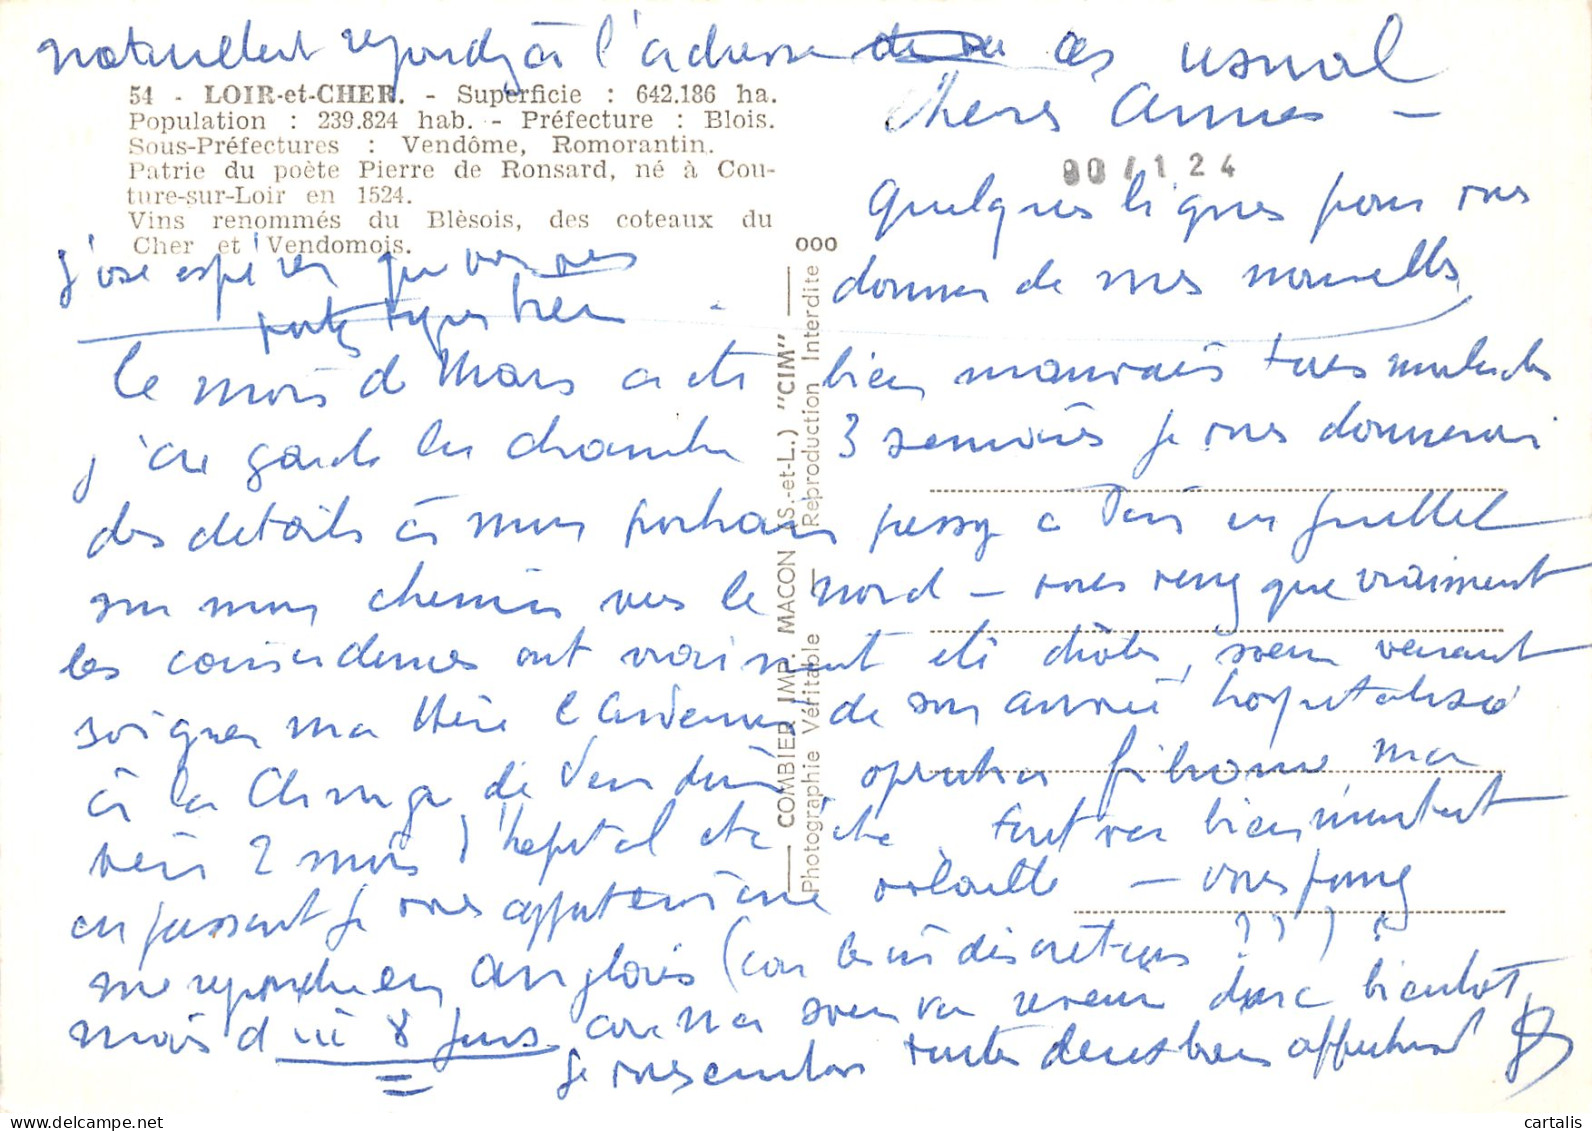 naturellement répondez à l'adresse as usual
54 - LOIR-et-CHER. - Superficie : 642.186 ha.
Population : 239.824 hab. - Préfecture : Blois.
Sous-Préfectures : Vendôme, Romorantin.
Patrie du poète Pierre de Ronsard, né à Cou-
ture-sur-Loir en 1524.
Vins renommés du Blèsois, des coteaux du
Cher et Vendomois.
Chères Amies -
90 / 1 2 4
Quelques lignes pour vous
donner de mes nouvelles
j'ose espérer que vous
toutes bien
000
COMBIER IMP. MACON (S.-et-L.) "CIM"
Photographie Véritable - Reproduction Interdite
le mois de Mars a été bien mauvais très malade
j'ai gardé la chambre 3 semaines je vous donnerai
des détails à mon prochain passage à Paris en Juillet
sur mon chemin vers le Nord - vous voyez que vraiment
les coincidences ont vraiment été drôles, soeur venant
soigner ma Mère le lendemain de son arrivée hospitalisée
à la Chirurgie de Vendôme, opération fibrome ma
mère 2 mois d'hôpital etc etc. Tout va bien maintenant
en passant je vous - vous
me répondre en anglais (car les indiscrétions ? ? ) ?
mois d'ici 8 jours car ma soeur va revenir donc bientôt
je vous toutes deux bien affectueusement
cartalis